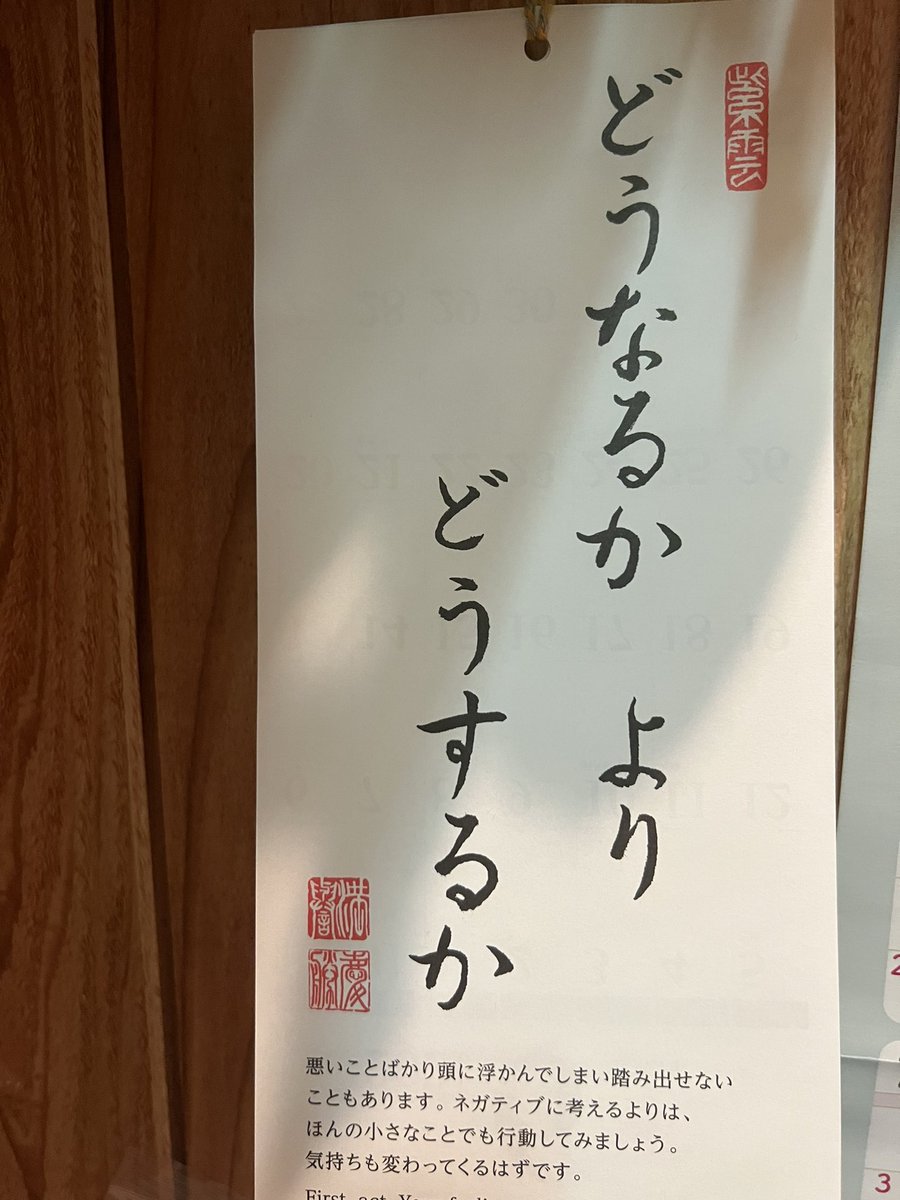 紫雲
どうなるか より
どうするか
悪いことばかり頭に浮かんでしまい踏み出せない
こともあります。ネガティブに考えるよりは、
ほんの小さなことでも行動してみましょう。
気持ちも変わってくるはずです。
First act. You